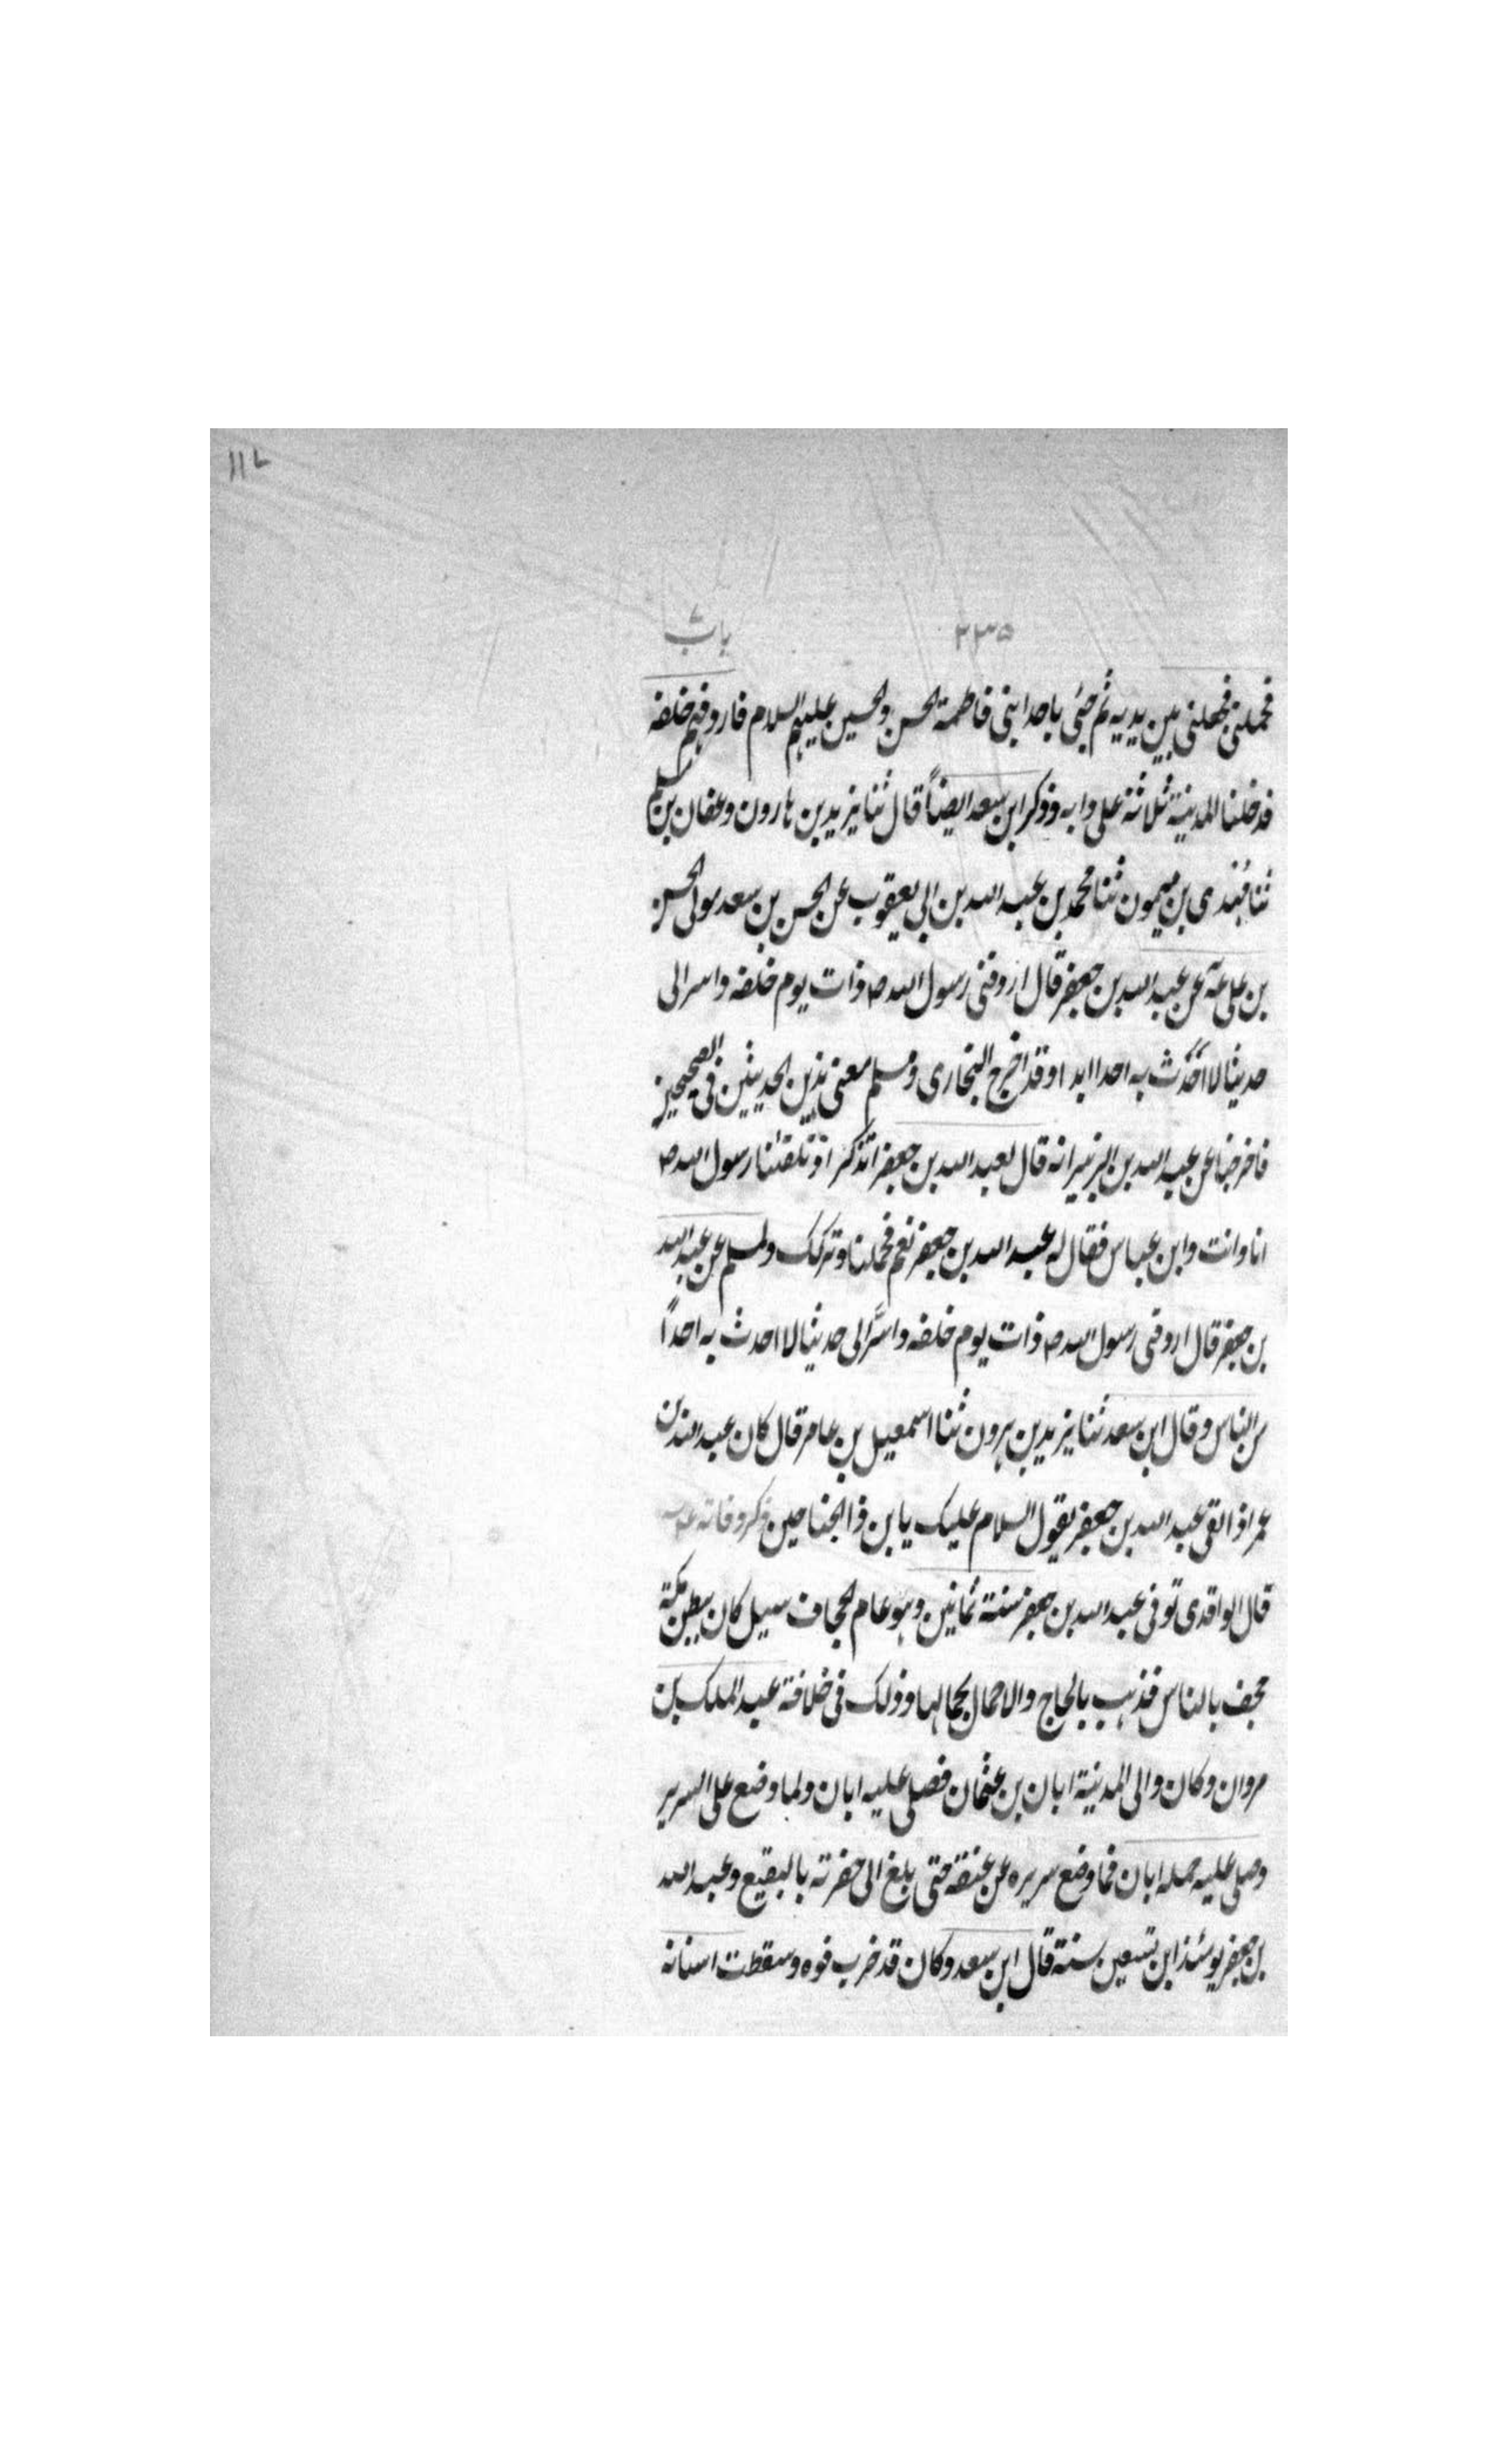 ١١٧
٢٣٥ باب ٧
فحملنى فجعلنى بين يديه ثم جئى باحد ابنى فاطمة الحسن والحسين عليهم السلام فاردفهم خلفه
فدخلنا المدينة ثلاثة على دابه وذكر ابن سعد ايضاً قال ثنا يزيد بن هارون وعفان بن مسلم
ثنا مهدى بن ميمون ثنا محمد بن عبد الله بن ابى يعقوب عن الحسن بن سعد مولى الحسن
بن على عن عبد الله بن جعفر قال اردفنى رسول الله ص ذات يوم خلفه واسر الى
حديثا لا اُحدّث به احدا ابدا وقد اخرج البخارى ومسلم معنى هذين الحديثين فى الصحيحين
فاخرجا عن عبد الله بن الزبير انه قال لعبد الله بن جعفر اتذكر اذ تلقينا رسول الله ص
انا وانت وابن عباس فقال له عبد الله بن جعفر نعم فحملنا وتركك ولمسلم عن عبد الله
بن جعفر قال اردفنى رسول الله ص ذات يوم خلفه واسَّر الى حديثا لا احدث به احداً
من الناس وقال ابن سعد ثنا يزيد بن هرون ثنا اسمعيل بن عامر قال كان عبد الله بن
عمر اذا لقى عبد الله بن جعفر يقول السلام عليك يا بن ذا الجناحين ذكر وفاته
قال الواقدى توفى عبد الله بن جعفر سنة ثمانين وهو عام الجحاف سيل كان ببطن مكة
جحف بالناس فذهب بالحاج والاحمال بجمالها وذلك فى خلافة عبد الملك بن
مروان وكان والى المدينة ابان بن عثمان فصلى عليه ابان ولما وضع على السرير
وصلى عليه حمله ابان فما وضع سريره عن عنقه حتى بلغ الى حفرته بالبقيع وعبد الله
بن جعفر يومئذ ابن تسعين سنة قال ابن سعد وكان قد خرب فوه وسقطت اسنانه